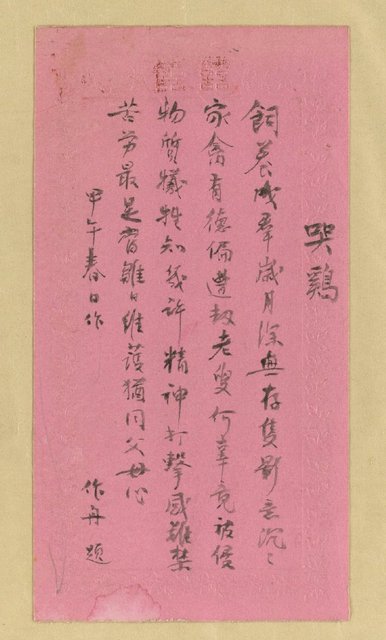 哭鷄
飼養成羣歲月深無存隻影意沉〻
家禽有德偏遭劫老叟何辜竟被侵
物質犧牲知幾許精神打擊感難禁
苦勞最是當雛日維護猶同父母心
甲午春日作
作舟題